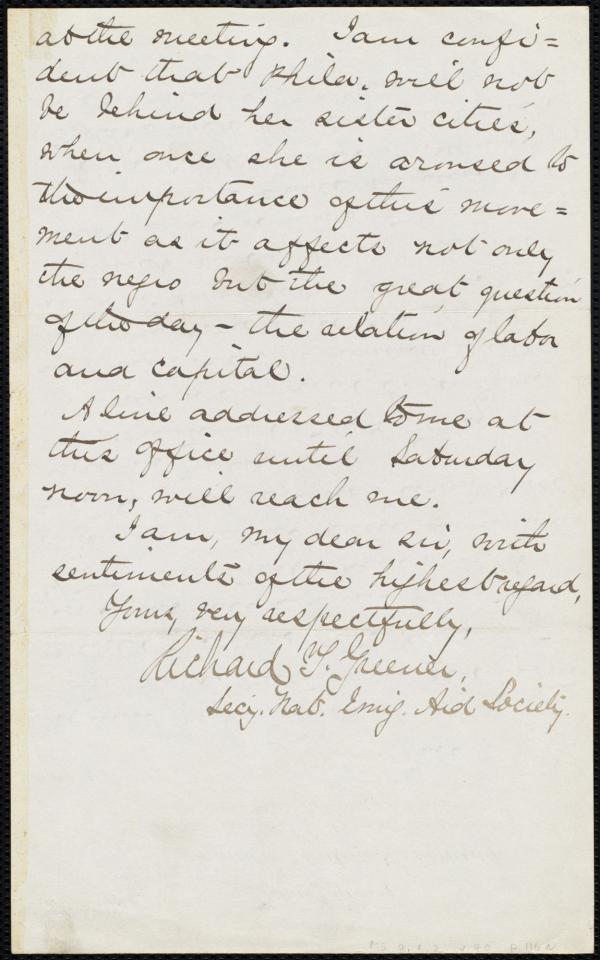 at the meeting. I am confi=
dent that Phila. will not
be behind her sister cities,
when once she is aroused to
the importance of this move=
ment as it affects not only
the negro but the great question
of the day – the relation of labor
and capital.
A line addressed to me at
this office until Saturday
noon, will reach me.
I am, my dear sir, with
sentiments of the highest regard,
Yours, very respectfully,
Richard T. Greener,
Secy. Nat. Emig. Aid Society.